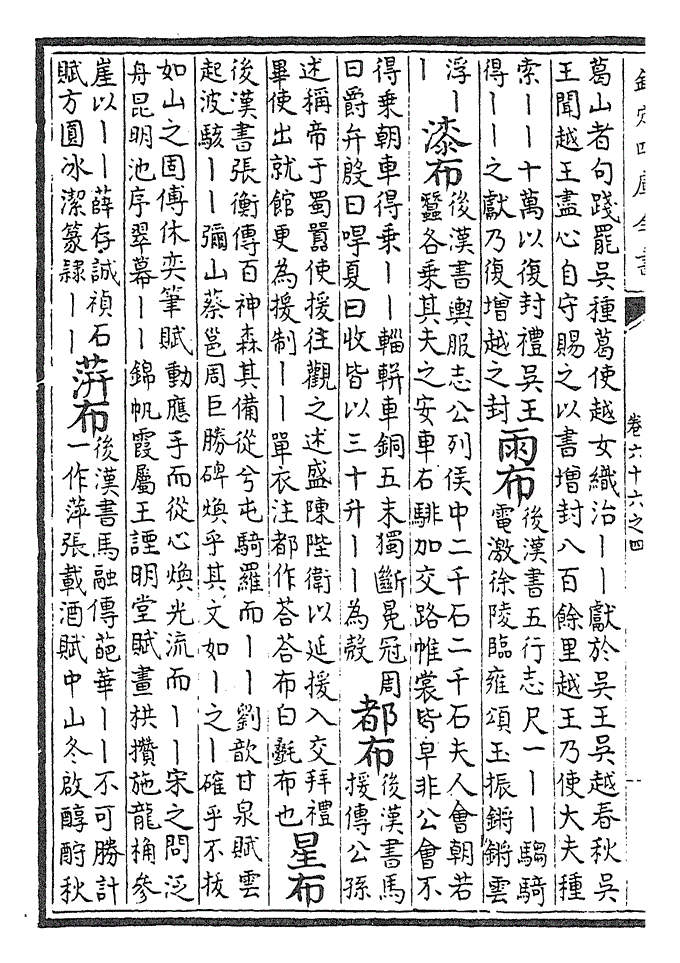 欽定四庫全書
卷六十六之四
葛山者句踐罷吳種葛使越女織治丨丨獻於吳王吳越春秋吳
王聞越王盡心自守賜之以書增封八百餘里越王乃使大夫種
索丨丨十萬以復封禮吳王
得丨丨之獻乃復增越之封
雨布
後漢書五行志尺一丨丨騶騎
電激徐陵臨雍頌玉振鏘鏘雲
浮丨
丨
漆布
後漢書輿服志公列侯中二千石二千石夫人會朝若
蠶各乘其夫之安車右騑加交路帷裳皆皁非公會不
得乘朝車得乘丨丨輜軿車銅五末獨斷冕冠周
曰爵弁殷曰哻夏曰收皆以三十升丨丨為殼
都布
後漢書馬
援傳公孫
述稱帝于蜀囂使援往觀之述盛陳陛衛以延援入交拜禮
畢使出就館更為援制丨丨單衣注都作荅荅布白㲲布也
星布
後漢書張衡傳百神森其備從兮屯騎羅而丨丨劉歆甘泉賦雲
起波駭丨丨彌山蔡邕周巨勝碑煥乎其文如丨之丨確乎不拔
如山之固傅休奕筆賦動應手而從心煥光流而丨丨宋之問泛
舟昆明池序翠幕丨丨錦帆霞屬王諲明堂賦畫栱攢施龍桷參
崖以丨丨薛存誠禎石
賦方圓冰潔篆隸丨丨
蓱布
後漢書馬融傳葩華丨丨不可勝計
一作萍張載酒賦中山冬啟醇酎秋